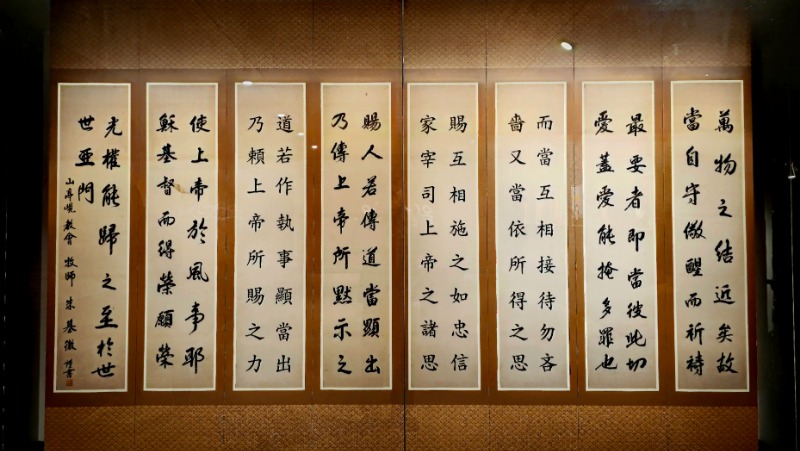 萬物之結近矣故
當自守儆醒而祈禱
最要者即當彼此切
愛蓋愛能掩多罪也
而當互相接待勿吝
嗇又當依所得之恩
賜互相施之如忠信
家宰司上帝之諸恩
賜人若傳道當顯出
乃傳上帝所默示之
道若作執事顯當出
乃賴上帝所賜之力
使上帝於風事耶
穌基督而得榮願榮
光權能歸之至於世
世亞門
山亭峴教會 牧師 朱基徹 謹書